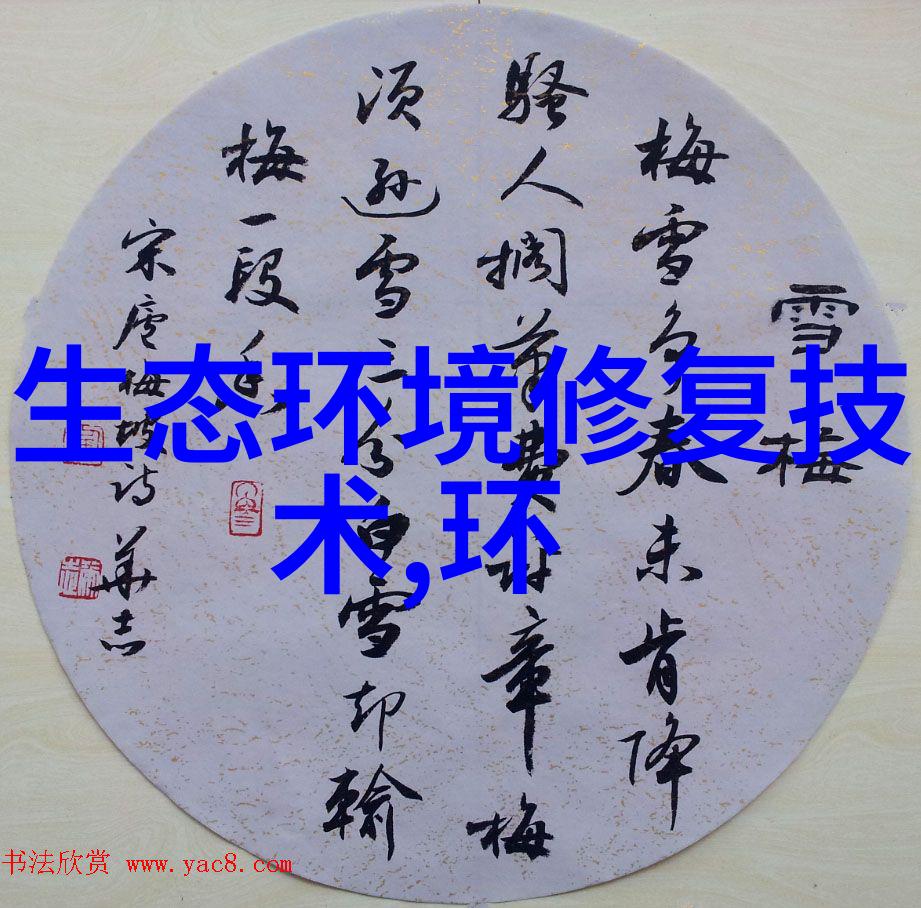 雪梅
梅雪争春未肯降
骚人搁笔费评章梅
须逊雪三分白雪却输
梅一段香
宋卢梅坡诗 华志
生态环境修复技
术,环
书法欣赏 www.yac8.com